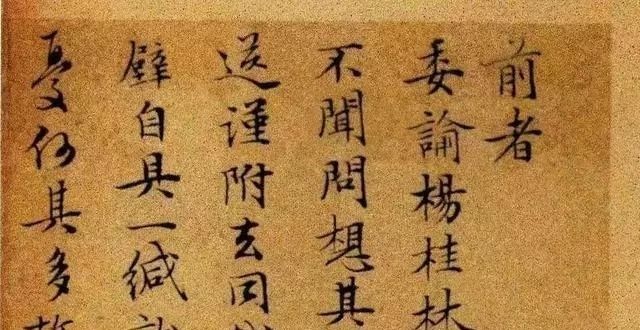 前者
委論楊桂林
不聞問想其
送謹附去同
壁自具一緘
憂何其多